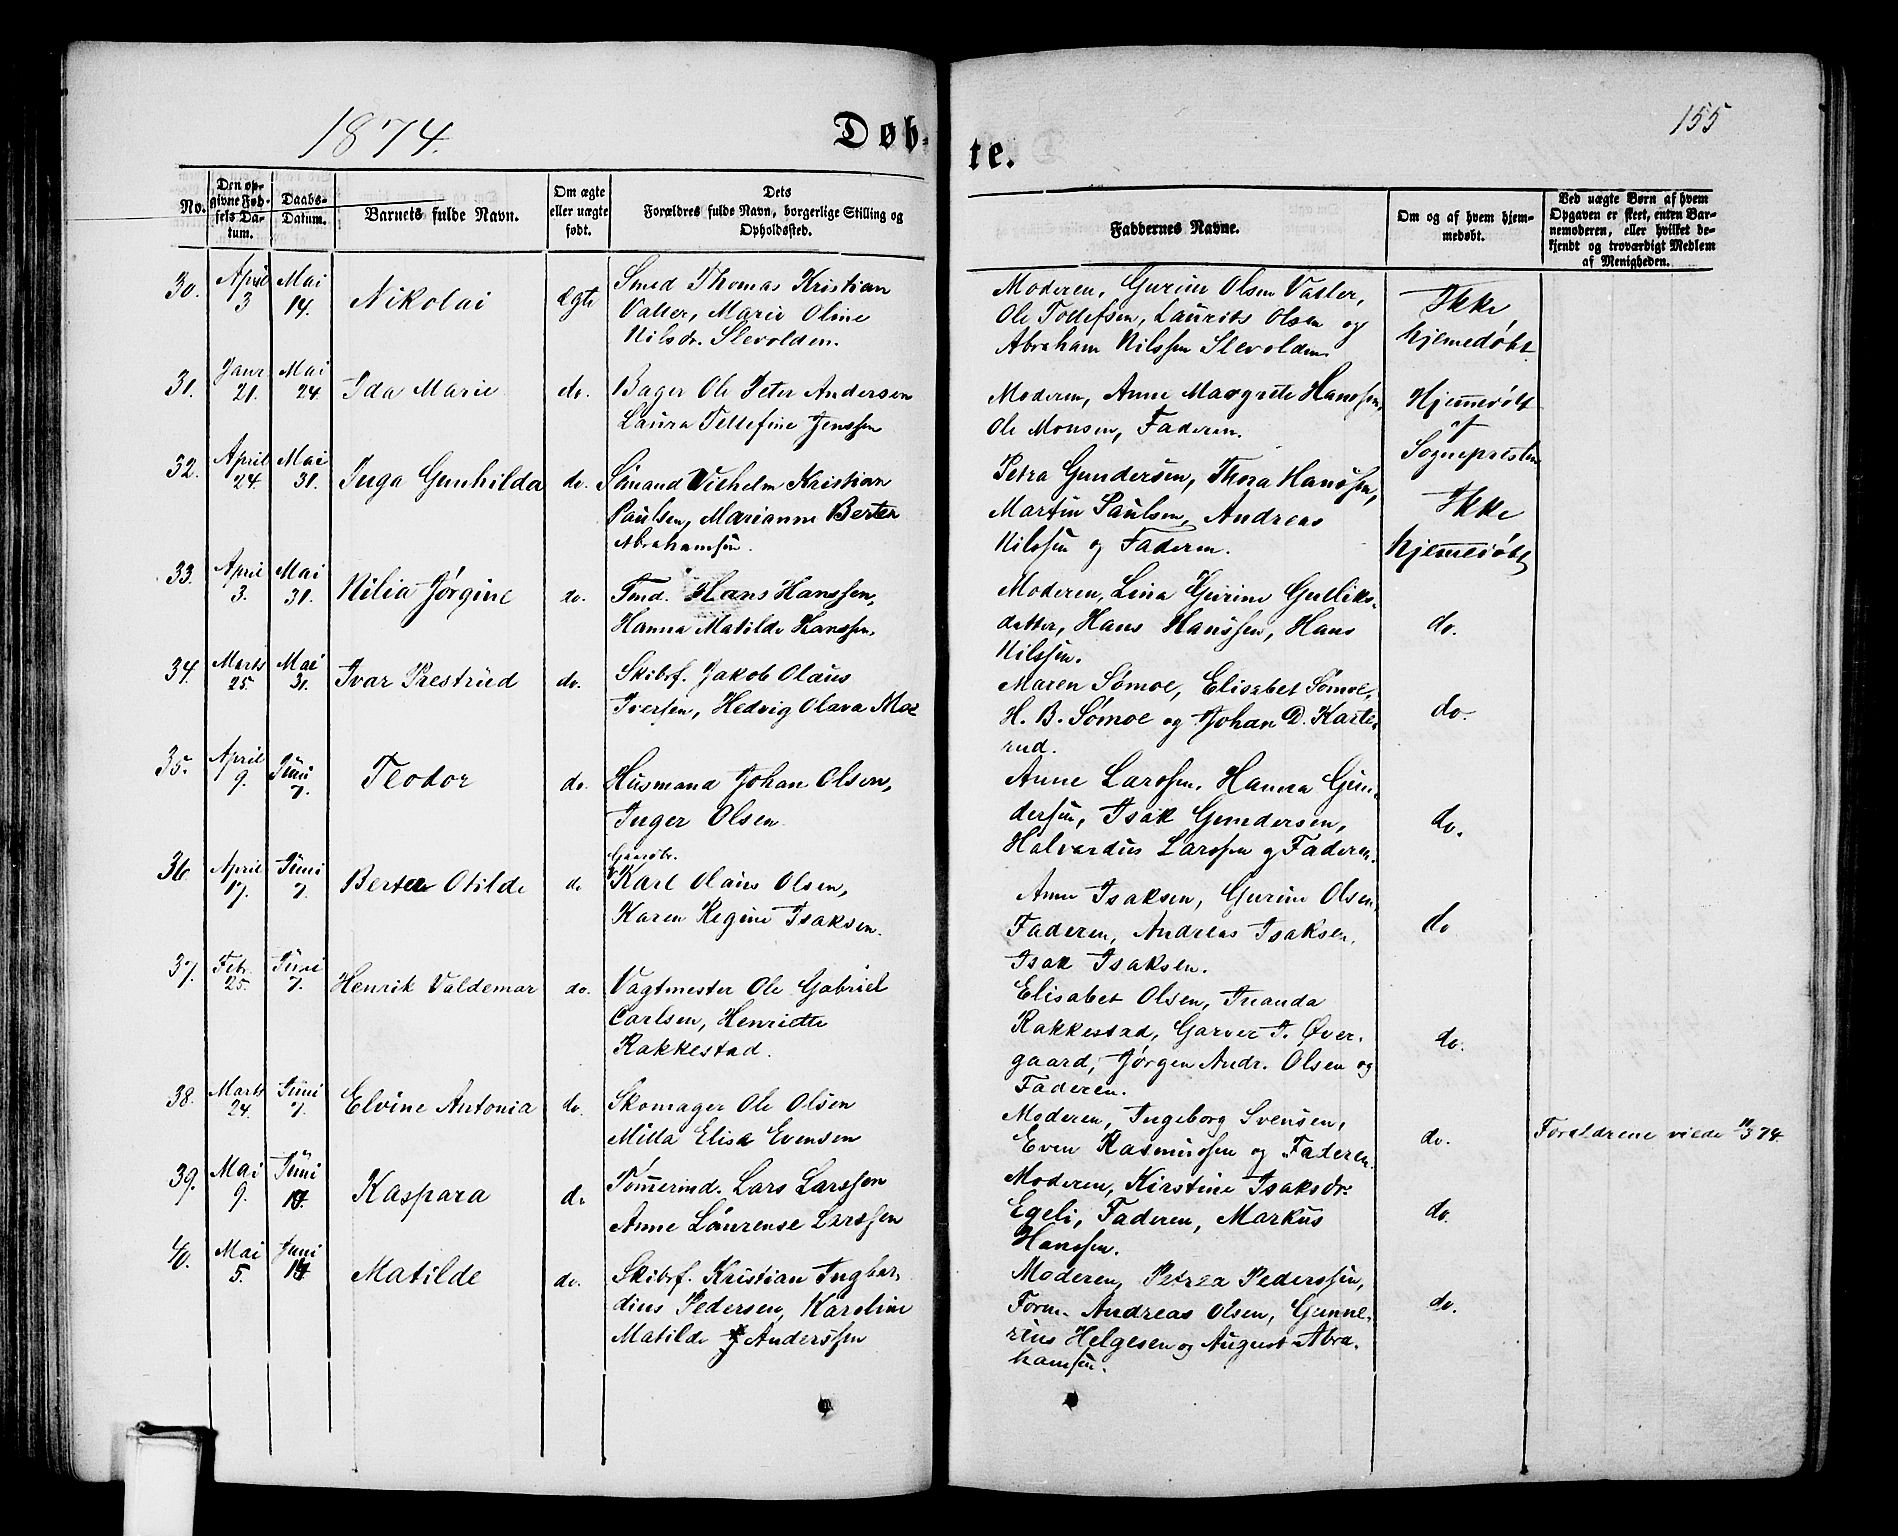 1874.
Døb-
te.
155
No.
Den op-
givne Fød-
sels Da-
tum.
Daabs-
Datum.
Barnets fulde Navn.
Om ægte
eller uægte
født.
Dets
Forældres fulde Navn, borgerlige Stilling og
Opholdssted.
Faddernes Navne.
Om og af hvem hjem-
medøbt.
Ved uægte Børn af hvem
Opgaven er skeet, enten Bar-
nemoderen, eller hvilket be-
kjendt og troværdigt Medlem
af Menigheden.
30. April 3 Mai 14. Nikolai ægte
Smed Thomas Kristian
Valler, Marie Oline
Nilsdr. Slevolden.
Moderen, Gurine Olsen Valler,
Ole Tollefsen, Laurits Olsen og
Abraham Nilssen Slevolden
Ikke
hjemedøbt
31. Janr 21. Mai 24. Ida Marie do.
Bager Ole Peter Andersen
Laura Tellefine Jenssen
Moderen, Anne Margrete Hanssen,
Ole Monsen, Faderen.
Hjemedøbt
af
Sognepresten
32. April 24. Mai 31. Inga Gunhilda do.
Sömand Vilhelm Kristian
Paulsen, Marianne Berter
Abrahamsen.
Petra Gundersen, Thora Hanssen,
Martin Paulsen, Andreas
Nilssen og Faderen.
Ikke
hjemedøbt
33. April 3. Mai 31. Nilia Jørgine do.
Tmd. Hans Hanssen,
Hanna Matilde Hanssen,
Moderen, Lina Gurine Gulliks-
datter, Hans Hanssen, Hans
Nilssen.
do.
34. Marts 25. Mai 31. Ivar Prestrud do.
Skibsf. Jakob Olaus
Iversen, Hedvig Olava Moe
Maren Sømoe, Elisabet Sømoe,
H. B. Sømoe og Johan D. Karte-
rud.
do.
35. April 9. Juni 7. Teodor do.
Husmand Johan Olsen,
Inger Olsen
Anne Larssen, Hanna Gun-
dersen, Isak Gundersen,
Halvardus Larssen og Faderen.
do.
36. April 17. Juni 7. Berte Otilde do
Karl Olaus Olsen,
Karen Regine Isaksen.
Anne Isaksen, Gurine Olsen,
Faderen, Andreas Isaksen,
Isak Isaksen.
do
37. Febr. 25. Juni 7. Henrik Valdemar do.
Vagtmester Ole Gabriel
Carlsen, Henriette
Rakkestad.
Elisabet Olsen, Inanda
Rakkestad, Garver T. Øver-
gaard, Jørgen Andr. Olsen og
Faderen.
do.
38. Marts 24. Juni 7. Elvine Antonia do.
Skomager Ole Olsen
Milla Elisa Evensen
Moderen, Ingeborg Svensen,
Even Rasmussen og Faderen.
do.
Forældrene viede 11/3 74
39. Mai 9. Juni 14. Kaspara do
Tømmermd. Lars Larssen
Anne Laurense Larssen
Moderen, Kirstine Isaksdr:
Egeli, Faderen, Markus
Hanssen.
do.
40. Mai 5. Juni 14 Matilde do.
Skibsf. Kristian Ingbar-
dius Pedersen, Karoline
Matilde Anderssen
Moderen, Petrea Pederssen,
Form. Andreas Olsen, Gunne-
rius Helgesen og August Abra-
hamsen.
do.